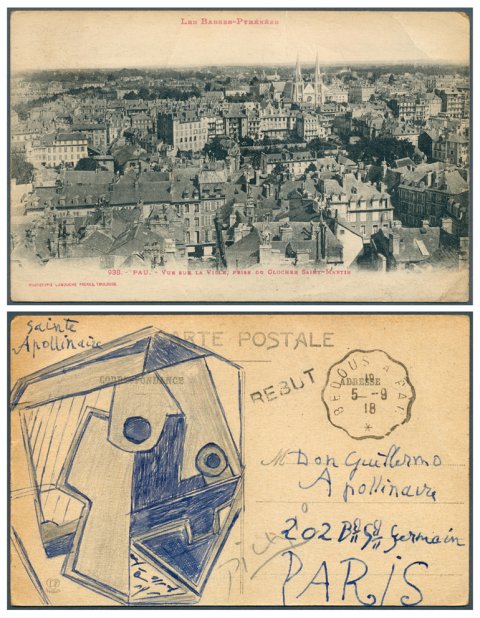 LES BASSES-PYRÉNÉES
938. - PAU. - VUE SUR LA VILLE, PRISE DU CLOCHER SAINT-MARTIN
PHOTOTYPIE LABOUCHE FRÈRES, TOULOUSE.
Sainte
Apollinaire
CARTE POSTALE
CORRESPONDANCE
REBUT
ADRESSE
BEDOUS A PAU
19
5 - 9
18
M Don Guillermo
Apollinaire
202 Bd St Germain
PARIS
PICASSO